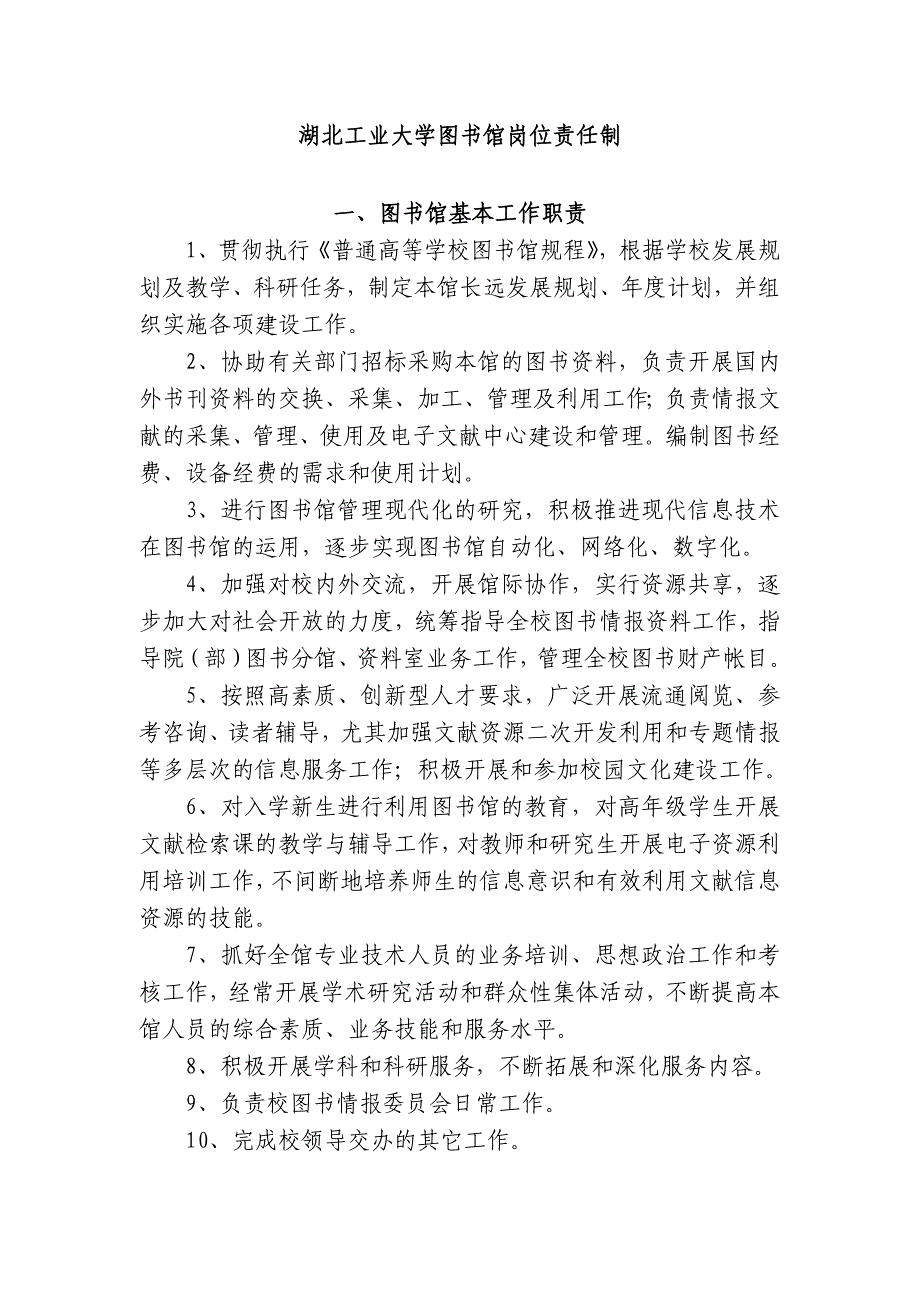 湖北工业大学图书馆岗位责任制
一、图书馆基本工作职责
1、贯彻执行《普通高等学校图书馆规程》，根据学校发展规
划及教学、科研任务，制定本馆长远发展规划、年度计划，并组
织实施各项建设工作。
2、协助有关部门招标采购本馆的图书资料，负责开展国内
外书刊资料的交换、采集、加工、管理及利用工作；负责情报文
献的采集、管理、使用及电子文献中心建设和管理。编制图书经
费、设备经费的需求和使用计划。
3、进行图书馆管理现代化的研究，积极推进现代信息技术
在图书馆的运用，逐步实现图书馆自动化、网络化、数字化。
4、加强对校内外交流，开展馆际协作，实行资源共享，逐
步加大对社会开放的力度，统筹指导全校图书情报资料工作，指
导院（部）图书分馆、资料室业务工作，管理全校图书财产帐目。
5、按照高素质、创新型人才要求，广泛开展流通阅览、参
考咨询、读者辅导，尤其加强文献资源二次开发利用和专题情报
等多层次的信息服务工作；积极开展和参加校园文化建设工作。
6、对入学新生进行利用图书馆的教育，对高年级学生开展
文献检索课的教学与辅导工作，对教师和研究生开展电子资源利
用培训工作，不间断地培养师生的信息意识和有效利用文献信息
资源的技能。
7、抓好全馆专业技术人员的业务培训、思想政治工作和考
核工作，经常开展学术研究活动和群众性集体活动，不断提高本
馆人员的综合素质、业务技能和服务水平。
8、积极开展学科和科研服务，不断拓展和深化服务内容。
9、负责校图书情报委员会日常工作。
10、完成校领导交办的其它工作。